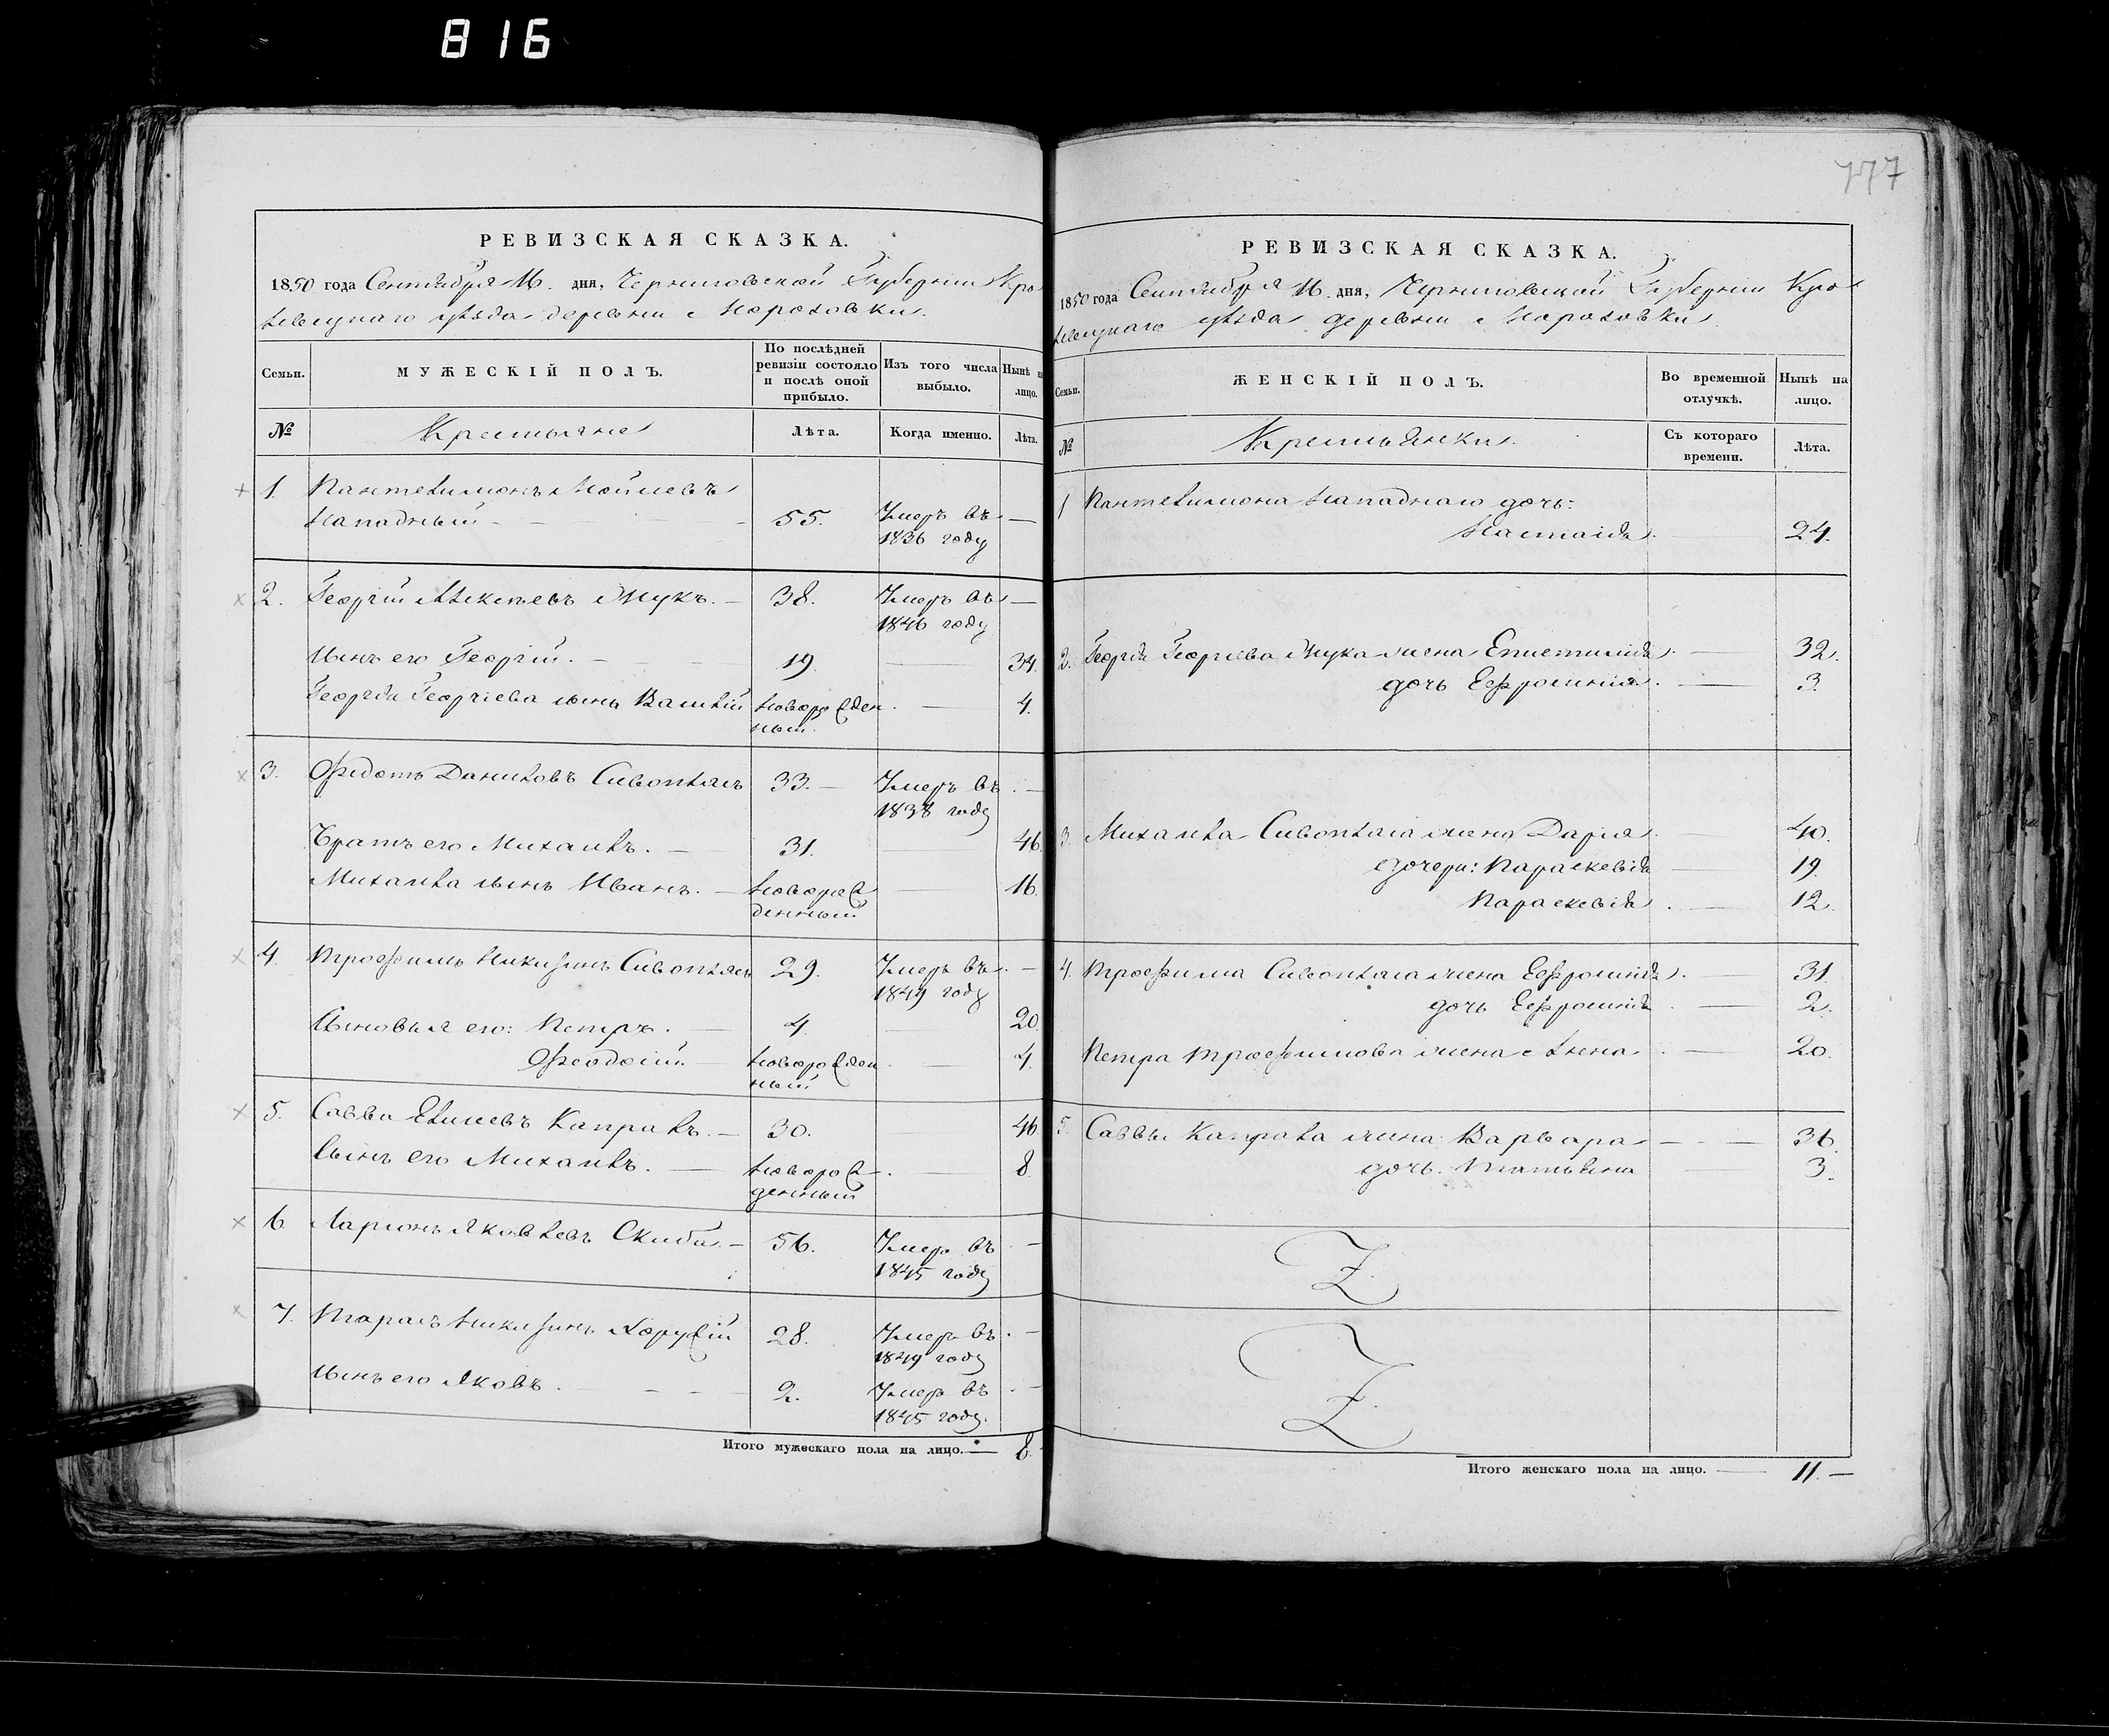 816
777
РЕВИЗСКАЯ СКАЗКА.
1850 года Сентября 16. дня, Черниговской Губернии Кро
левецкаго уѣзда деревни Мороховки.
Семьи.
МУЖЕСКІЙ ПОЛЪ.
По послѣдней ревизіи состояло и послѣ оной прибыло.
Изъ того числа выбыло.
Нынѣ на лицо.
№
Крестьяне
Лѣта.
Когда именно.
Лѣта.
1. Пантелимонъ Мойсеевъ
Нападный 55. Умеръ въ
1836 году
2. Георгій Алексѣевъ Мукъ. 38. Умеръ въ
1846 году
Сынъ его Георгій. 19. 34.
Георгія Георгіева сынъ Василій новорожден 4.
ный.
3. Федотъ Даниловъ Сивоплясъ 33. Умеръ въ
1838 году
Братъ его Михаилъ. 31. 46.
Михаила сынъ Иванъ. новорож 16.
денный
4. Трофимъ Никифинъ Сивоплясъ 29. Умеръ въ
1849 году
Сыновья его: Петръ. 4 20.
Феодосій новорожден 4.
ный
5. Савва Елисеевъ Капраль. 30. 46
Сынъ его Михаилъ. новорож 8
денный
6. Ларіонъ Яковлевъ Скиба. 56. Умеръ въ
1845 году
7. Тарасъ Никифинъ Хоружій 28. Умеръ въ
1849 году
Сынъ его Яковъ. 2. Умеръ въ
1845 году.
Итого мужескаго пола на лицо. 8
РЕВИЗСКАЯ СКАЗКА.
1850 года Сентября 16. дня, Черниговской Губернии Кро
левецкаго уѣзда деревни Мороховки
Семьи.
ЖЕНСКІЙ ПОЛЪ.
Во временной отлучкѣ.
Нынѣ на лицо.
№
Крестьянки.
Съ котораго времени.
Лѣта.
1 Пантелимона Нападнаго дочь:
Настасія. 24.
2. Георгія Георгіева Мука жена Епистимія. 32.
дочь Ефросинія. 3.
3. Михаила Сивопляса жена Дарія. 40.
дочери: Параскевія 19.
Параскевія. 12.
4. Трофима Сивопляса жена Ефросинія. 31.
дочь Ефросинія 2.
Петра Трофимова жена Анна. 20.
5. Саввы Капрала жена Варвара 36.
дочь. Татьяна 3.
Z
Z
Итого женскаго пола на лицо. 11.